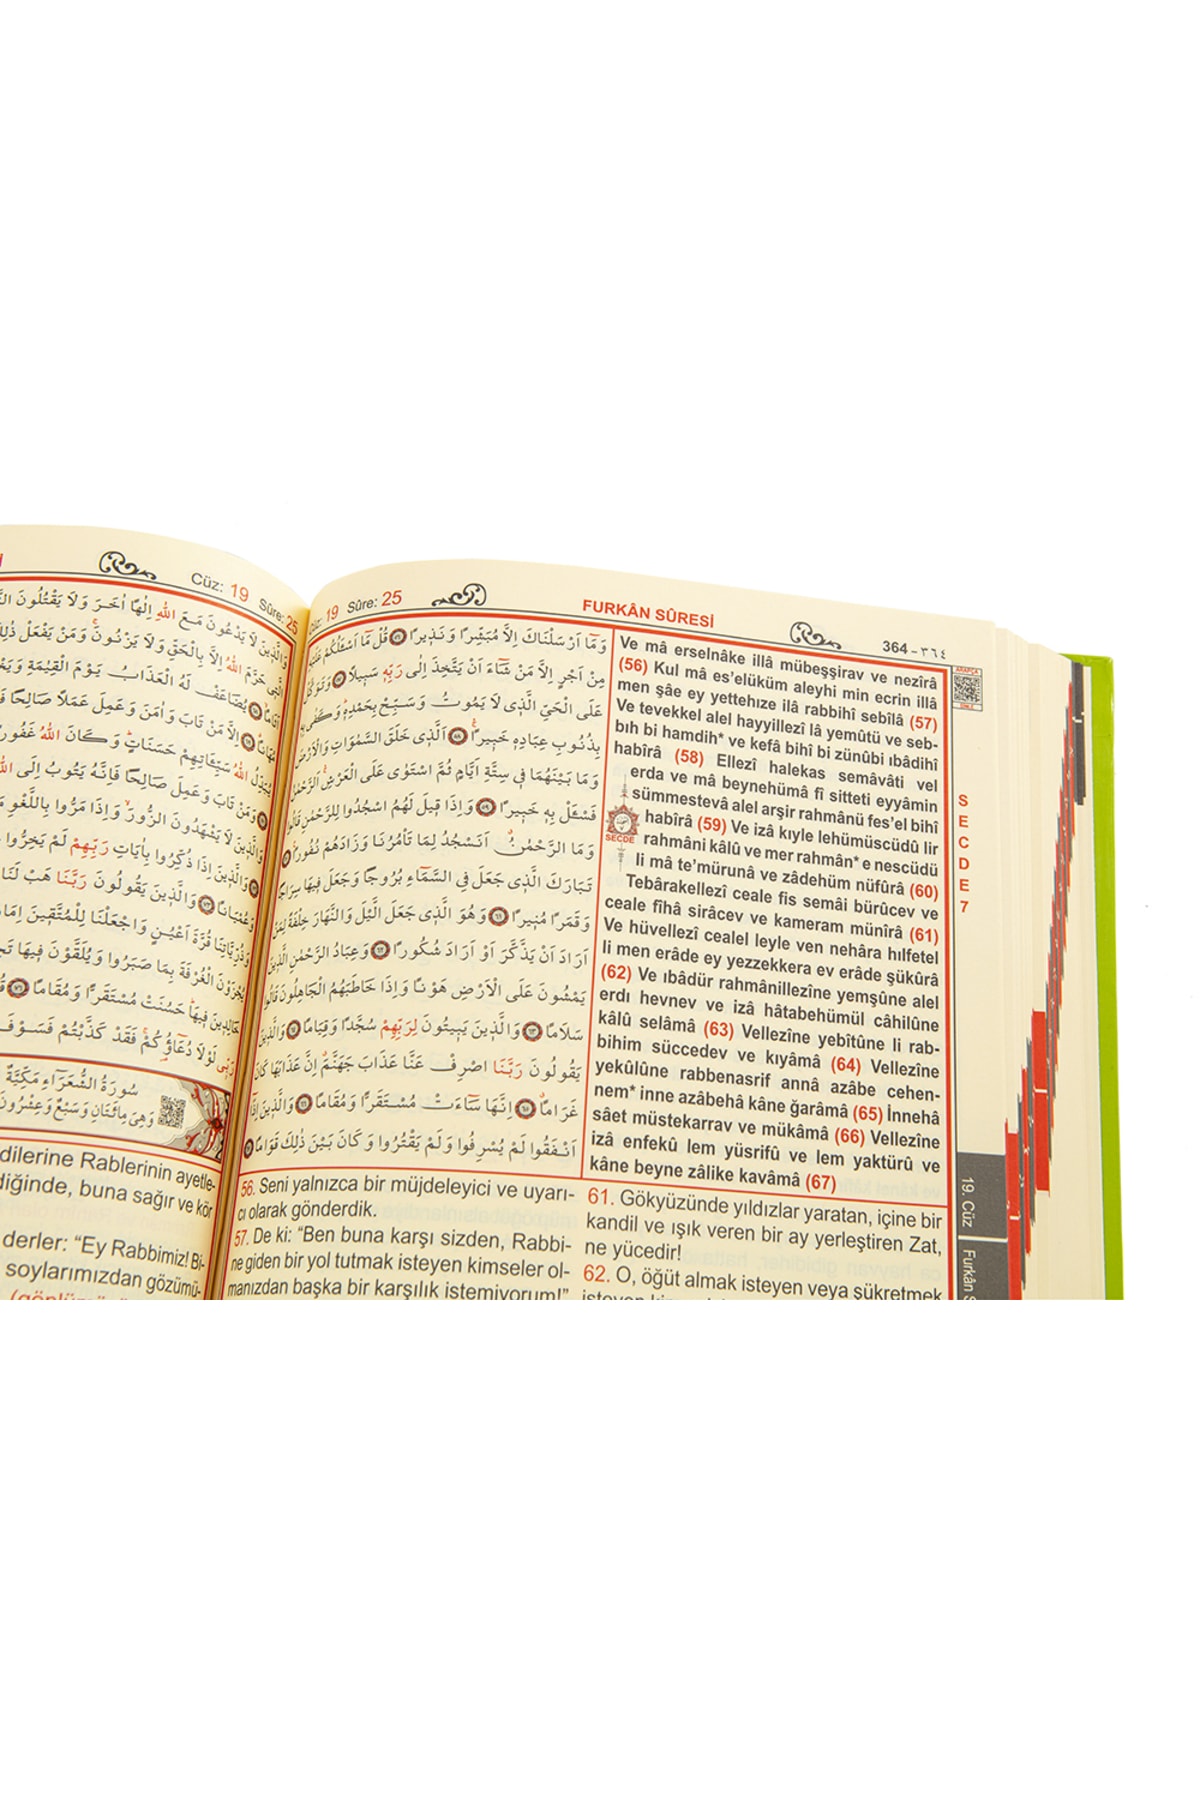 Cüz: 19 Sûre: 25
وَالَّذِينَ لَا يَدْعُونَ مَعَ اللهِ اِلٰهًا اٰخَرَ وَلَا يَقْتُلُونَ
حَرَّمَ اللهُ اِلَّا بِالْحَقِّ وَلَا يَزْنُونَۚ وَمَنْ يَفْعَلْ ذٰلِكَ
يُضَاعَفْ لَهُ الْعَذَابُ يَوْمَ الْقِيٰمَةِ
اِلَّا مَنْ تَابَ وَاٰمَنَ وَعَمِلَ عَمَلًا صَالِحًا
يُبَدِّلُ اللهُ سَيِّـَٔاتِهِمْ حَسَنَاتٍۜ وَكَانَ اللهُ غَفُورًا
وَمَنْ تَابَ وَعَمِلَ صَالِحًا فَاِنَّهُ يَتُوبُ اِلَى
وَالَّذِينَ لَا يَشْهَدُونَ الزُّورَۙ وَاِذَا مَرُّوا بِاللَّغْوِ
وَالَّذِينَ اِذَا ذُكِّرُوا بِاٰيَاتِ رَبِّهِمْ لَمْ يَخِرُّوا
وَعُمْيَانًا ٧٣ وَالَّذِينَ يَقُولُونَ رَبَّنَا هَبْ لَنَا
وَذُرِّيَّاتِنَا قُرَّةَ اَعْيُنٍ وَاجْعَلْنَا لِلْمُتَّقِينَ
يُجْزَوْنَ الْغُرْفَةَ بِمَا صَبَرُوا وَيُلَقَّوْنَ فِيهَا
خَالِدِينَ فِيهَاۜ حَسُنَتْ مُسْتَقَرًّا وَمُقَامًا
رَبِّي لَوْلَا دُعَٓاؤُ۬كُمْۚ فَقَدْ كَذَّبْتُمْ فَسَوْفَ
سُورَةُ الشُّعَرَٓاءِ مَكِّيَّةٌ
وَهِيَ مِائَتَانِ وَسَبْعٌ وَعِشْرُونَ
dilerine Rablerinin ayetle-
diğinde, buna sağır ve kör
derler: “Ey Rabbimiz! Bi-
soylarımızdan gözümü-
Cüz: 19 Sûre: 25
FURKÂN SÛRESİ
364 - ٣٦٤
وَمَٓا اَرْسَلْنَاكَ اِلَّا مُبَشِّرًا وَنَذِيرًا ٥٦ قُلْ مَٓا اَسْـَٔلُكُمْ عَلَيْهِ
مِنْ اَجْرٍ اِلَّا مَنْ شَٓاءَ اَنْ يَتَّخِذَ اِلٰى رَبِّهِ سَبِيلًا ٥٧ وَتَوَكَّلْ
عَلَى الْحَيِّ الَّذِي لَا يَمُوتُ وَسَبِّحْ بِحَمْدِهِۜ وَكَفٰى بِهِ
بِذُنُوبِ عِبَادِهِ خَبِيرًاۚ ٥٨ اَلَّذِي خَلَقَ السَّمٰوَاتِ وَالْاَرْضَ
وَمَا بَيْنَهُمَا فِي سِتَّةِ اَيَّامٍ ثُمَّ اسْتَوٰى عَلَى الْعَرْشِۚ اَلرَّحْمٰنُ
فَسْـَٔلْ بِهِ خَبِيرًا ٥٩ وَاِذَا قِيلَ لَهُمُ اسْجُدُوا لِلرَّحْمٰنِ قَالُوا
وَمَا الرَّحْمٰنُۗ اَنَسْجُدُ لِمَا تَأْمُرُنَا وَزَادَهُمْ نُفُورًا ٦٠
تَبَارَكَ الَّذِي جَعَلَ فِي السَّمَٓاءِ بُرُوجًا وَجَعَلَ فِيهَا سِرَاجًا
وَقَمَرًا مُنِيرًا ٦١ وَهُوَ الَّذِي جَعَلَ الَّيْلَ وَالنَّهَارَ خِلْفَةً لِمَنْ
اَرَادَ اَنْ يَذَّكَّرَ اَوْ اَرَادَ شُكُورًا ٦٢ وَعِبَادُ الرَّحْمٰنِ الَّذِينَ
يَمْشُونَ عَلَى الْاَرْضِ هَوْنًا وَاِذَا خَاطَبَهُمُ الْجَاهِلُونَ قَالُوا
سَلَامًا ٦٣ وَالَّذِينَ يَبِيتُونَ لِرَبِّهِمْ سُجَّدًا وَقِيَامًا ٦٤ وَالَّذِينَ
يَقُولُونَ رَبَّنَا اصْرِفْ عَنَّا عَذَابَ جَهَنَّمَۗ اِنَّ عَذَابَهَا كَانَ
غَرَامًا ٦٥ اِنَّهَا سَٓاءَتْ مُسْتَقَرًّا وَمُقَامًا ٦٦ وَالَّذِينَ اِذَٓا
اَنْفَقُوا لَمْ يُسْرِفُوا وَلَمْ يَقْتُرُوا وَكَانَ بَيْنَ ذٰلِكَ قَوَامًا ٦٧
Ve mâ erselnâke illâ mübeşşirav ve nezîrâ
(56) Kul mâ es’elüküm aleyhi min ecrin illâ
men şâe ey yettehıze ilâ rabbihî sebîlâ (57)
Ve tevekkel alel hayyillezî lâ yemûtü ve seb-
bıh bi hamdih* ve kefâ bihî bi zünûbi ıbâdihî
habîrâ (58) Ellezî halekas semâvâti vel
erda ve mâ beynehümâ fî sitteti eyyâmin
sümmestevâ alel arşir rahmânü fes’el bihî
habîrâ (59) Ve izâ kıyle lehümüscüdû lir
rahmâni kâlû ve mer rahmân* e nescüdü
li mâ te’mürunâ ve zâdehüm nüfûrâ (60)
Tebârakellezî ceale fis semâi bürûcev ve
ceale fîhâ sirâcev ve kameram münîrâ (61)
Ve hüvellezî cealel leyle ven nehâra hılfetel
li men erâde ey yezzekkera ev erâde şükûrâ
(62) Ve ıbâdür rahmânillezîne yemşûne alel
erdı hevnev ve izâ hâtabehümül câhilûne
kâlû selâmâ (63) Vellezîne yebîtûne li rab-
bihim süccedev ve kıyâmâ (64) Vellezîne
yekûlûne rabbenasrif annâ azâbe cehen-
nem* inne azâbehâ kâne ğarâmâ (65) İnnehâ
sâet müstekarrav ve mükâmâ (66) Vellezîne
izâ enfekû lem yüsrifû ve lem yaktürû ve
kâne beyne zâlike kavâmâ (67)
SECDE
ARAPÇA
SECDE 7
19. Cüz
Furkân
56. Seni yalnızca bir müjdeleyici ve uyarı-
cı olarak gönderdik.
57. De ki: “Ben buna karşı sizden, Rabbi-
ne giden bir yol tutmak isteyen kimseler ol-
manızdan başka bir karşılık istemiyorum!”
61. Gökyüzünde yıldızlar yaratan, içine bir
kandil ve ışık veren bir ay yerleştiren Zat,
ne yücedir!
62. O, öğüt almak isteyen veya şükretmek